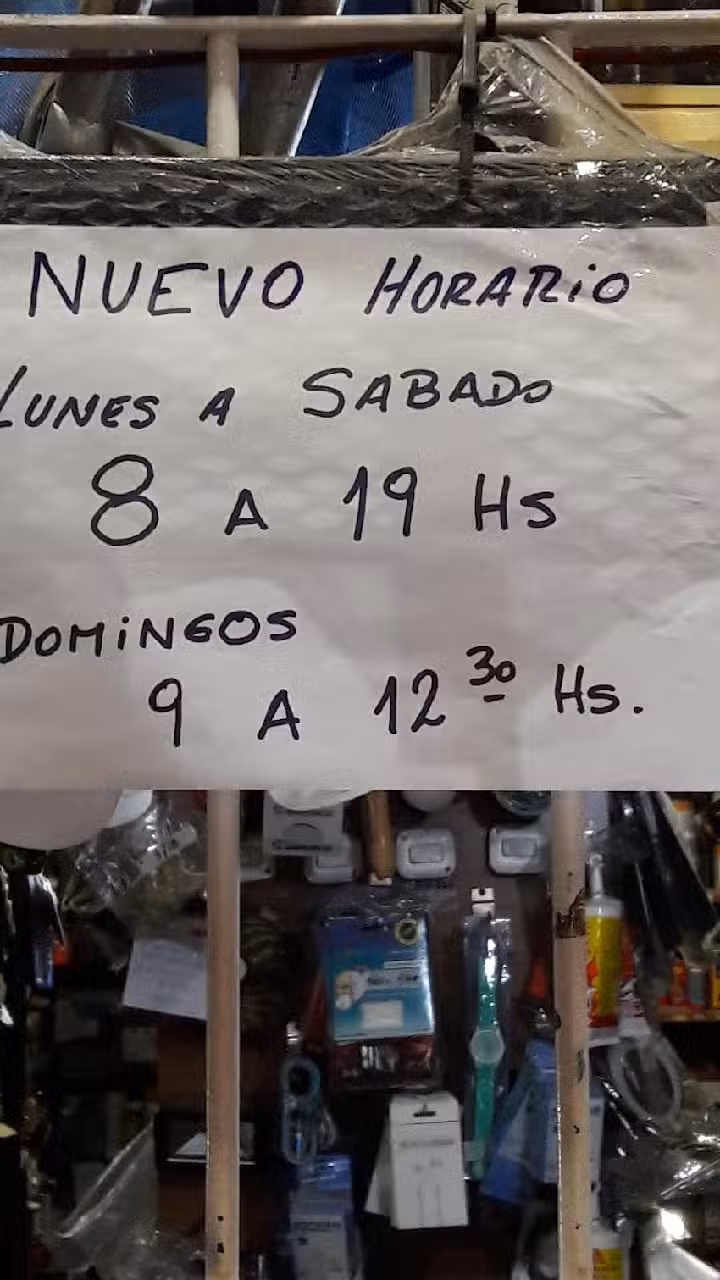 NUEVO HORARIO
LUNES A SABADO
8 A 19 HS
DOMINGOS
9 A 12 30 HS.